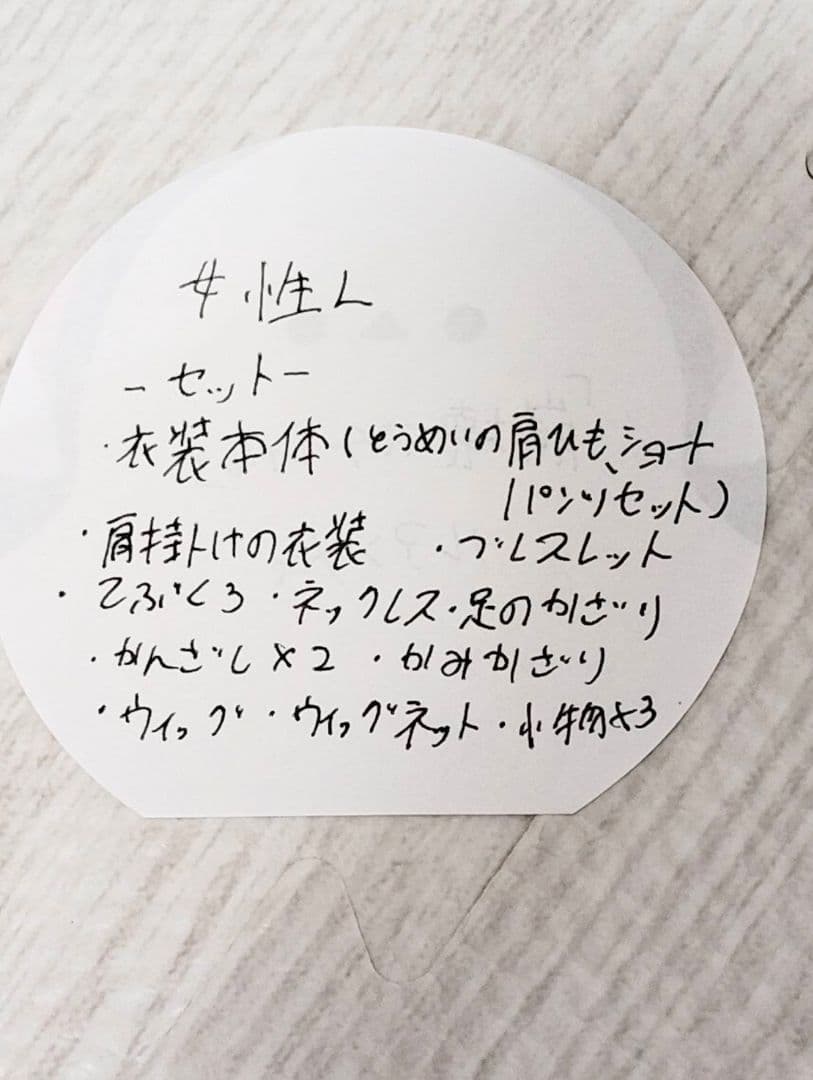 女性L
-セット-
・衣装本体(とうめいの肩ひも、ショート
パンツセット)
・肩掛けの衣装 ・ブレスレット
・てぶくろ・ネックレス・足のかざり
・かんざし×2 ・かみかざり
・ウィッグ・ウィッグネット・小物×3